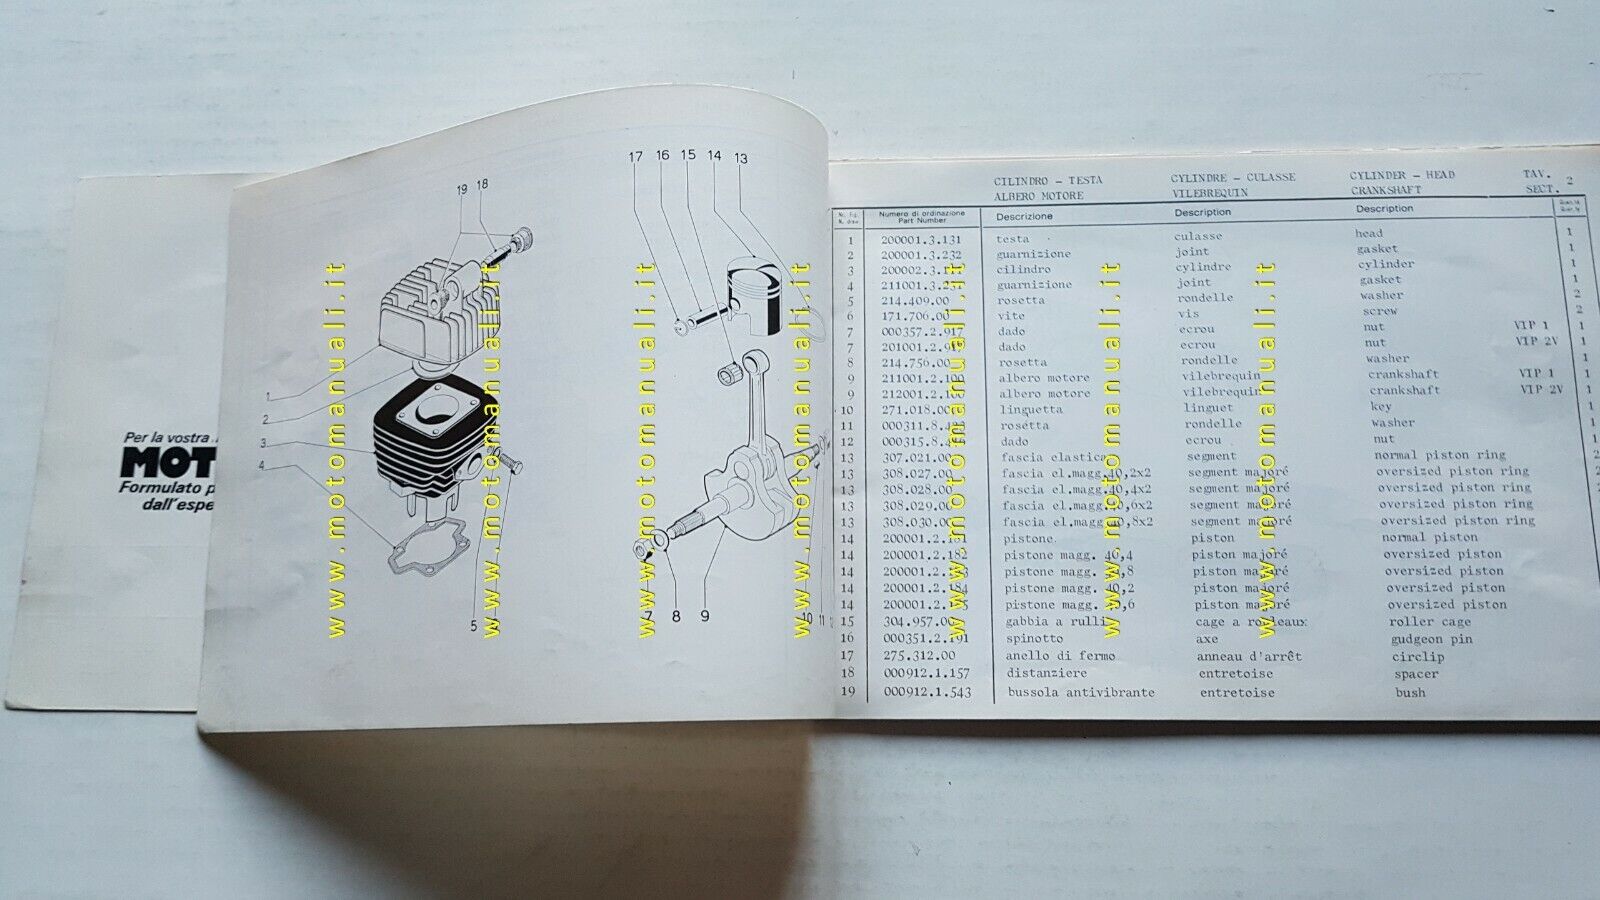 Per la vostra
MOT
Formulato p
dall'espe
19 18
17 16 15 14 13
1
2
3
4
5
7 8 9
10 11 12
www.motomanuali.it
www.motomanuali.it
www.motomanuali.it
www.motomanuali.it
www.motomanuali.it
www.motomanuali.it
www.motomanuali.it
CILINDRO - TESTA CYLINDRE - CULASSE CYLINDER - HEAD TAV. 2
ALBERO MOTORE VILEBREQUIN CRANKSHAFT SECT.
Numero di ordinazione
Part Number
Descrizione Description Description
1 200001.3.131 testa culasse head 1
2 200001.3.232 guarnizione joint gasket 1
3 200002.3. cilindro cylindre cylinder 1
4 211001.3.231 guarnizione joint gasket 1
5 214.409.00 rosetta rondelle washer 2
6 171.706.00 vite vis screw 2
7 000357.2.917 dado ecrou nut VIP 1 1
7 201001.2.917 dado ecrou nut VIP 2V 1
8 214.756.00 rosetta rondelle washer 1
9 211001.2.100 albero motore vilebrequin crankshaft VIP 1 1
9 212001.2.100 albero motore vilebrequin crankshaft VIP 2V 1
10 271.018.00 linguetta linguet key 1
11 000311.8. rosetta rondelle washer 1
12 000315.8. dado ecrou nut 1
13 307.021.00 fascia elastica segment normal piston ring 2
13 308.027.00 fascia el.magg.40,2x2 segment majoré oversized piston ring
13 308.028.00 fascia el.magg.40,4x2 segment majoré oversized piston ring
13 308.029.00 fascia el.magg.40,6x2 segment majoré oversized piston ring
13 308.030.00 fascia el.magg.40,8x2 segment majoré oversized piston ring
14 200001.2.181 pistone piston normal piston
14 200001.2.182 pistone magg. 40,4 piston majoré oversized piston
14 200001.2.183 pistone magg. 40,8 piston majoré oversized piston
14 200001.2.184 pistone magg. 40,2 piston majoré oversized piston
14 200001.2.185 pistone magg. 40,6 piston majoré oversized piston
15 304.957.00 gabbia a rulli cage a rouleaux roller cage
16 000351.2.191 spinotto axe gudgeon pin
17 275.312.00 anello di fermo anneau d'arrêt circlip
18 000912.1.157 distanziere entretoise spacer
19 000912.1.543 bussola antivibrante entretoise bush